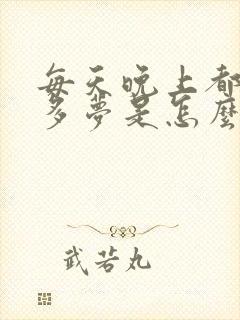 每天晚上都
多夢是怎麼
武若丸